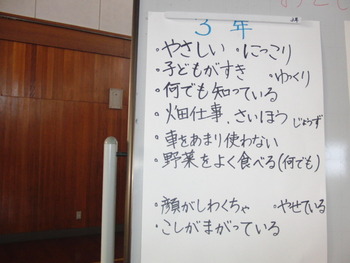 3年
・やさしい ・にっこり
・子どもがすき ・ゆっくり
・何でも知っている
・畑仕事、さいほう じょうず
・車をあまり使わない
・野菜をよく食べる(何でも)
・顔がしわくちゃ ・やせている
・こしがまがっている